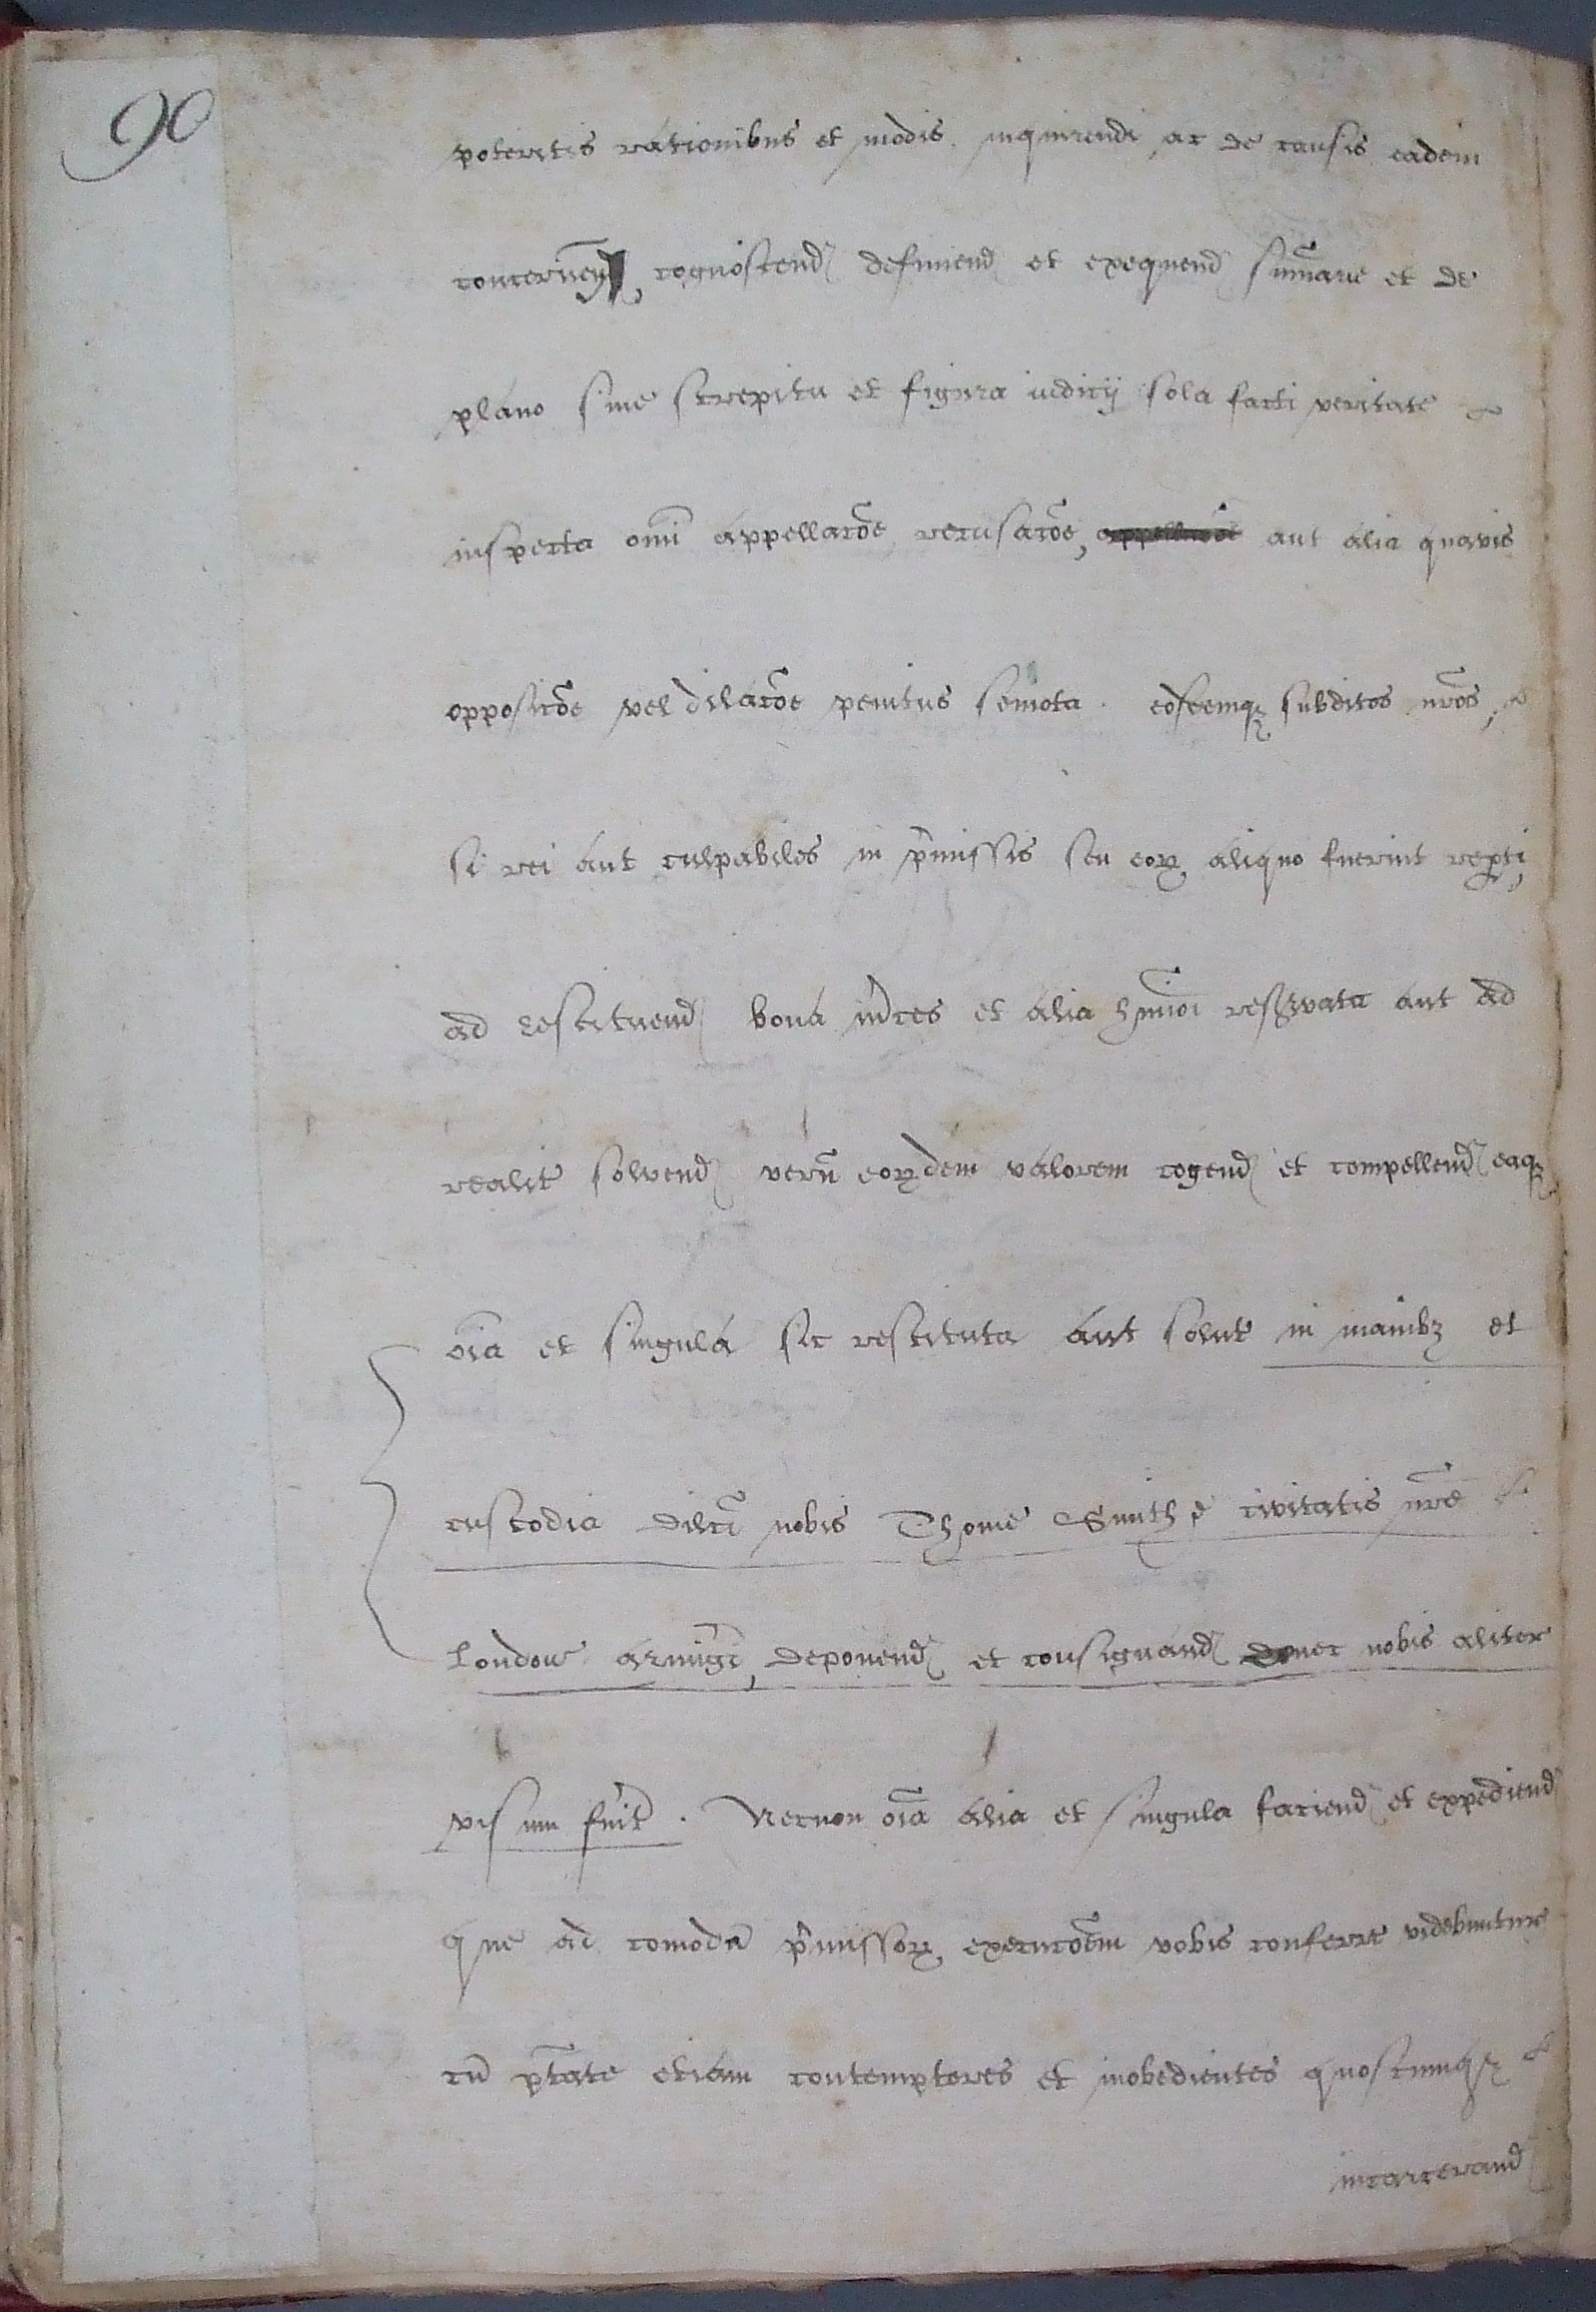 90
poteritis rationibus et modis, inquirendi, ac de causis eadem
concernen̄d, cognoscend definiend et exequend sum̄arie et de
plano sine strepitu et figura iudicij sola facti veritate
inspecta omī appellacōe, recusacōe, appellacōe aut alia quavis
opposicōe vel dilacōe penitus semota. eosdemqꝫ subditos nr̄os,
si rei aut culpabiles in p̄missis seu eoꝝ aliquo fuerint repti,
ad restituend bona m̄ces et alia hmōi reservata aut ad
realit̄ solvend verū eoꝝdem valorem cogend et compellend eaqꝫ
oīa et singula sic restituta aut solut̄ in manibꝫ et
custodia dilcī nobis Thome Smithe civitatis nr̄e
London armigī, deponend et consignand donec nobis aliter
visum fuit̄. Necnon oīa alia et singula faciend et expediend
que ad comodā p̄missoꝝ execucōem vobis conferre videbuntur
cū p̄tate etiam contemptores et inobedientes quoscumqꝫ
incarcerand